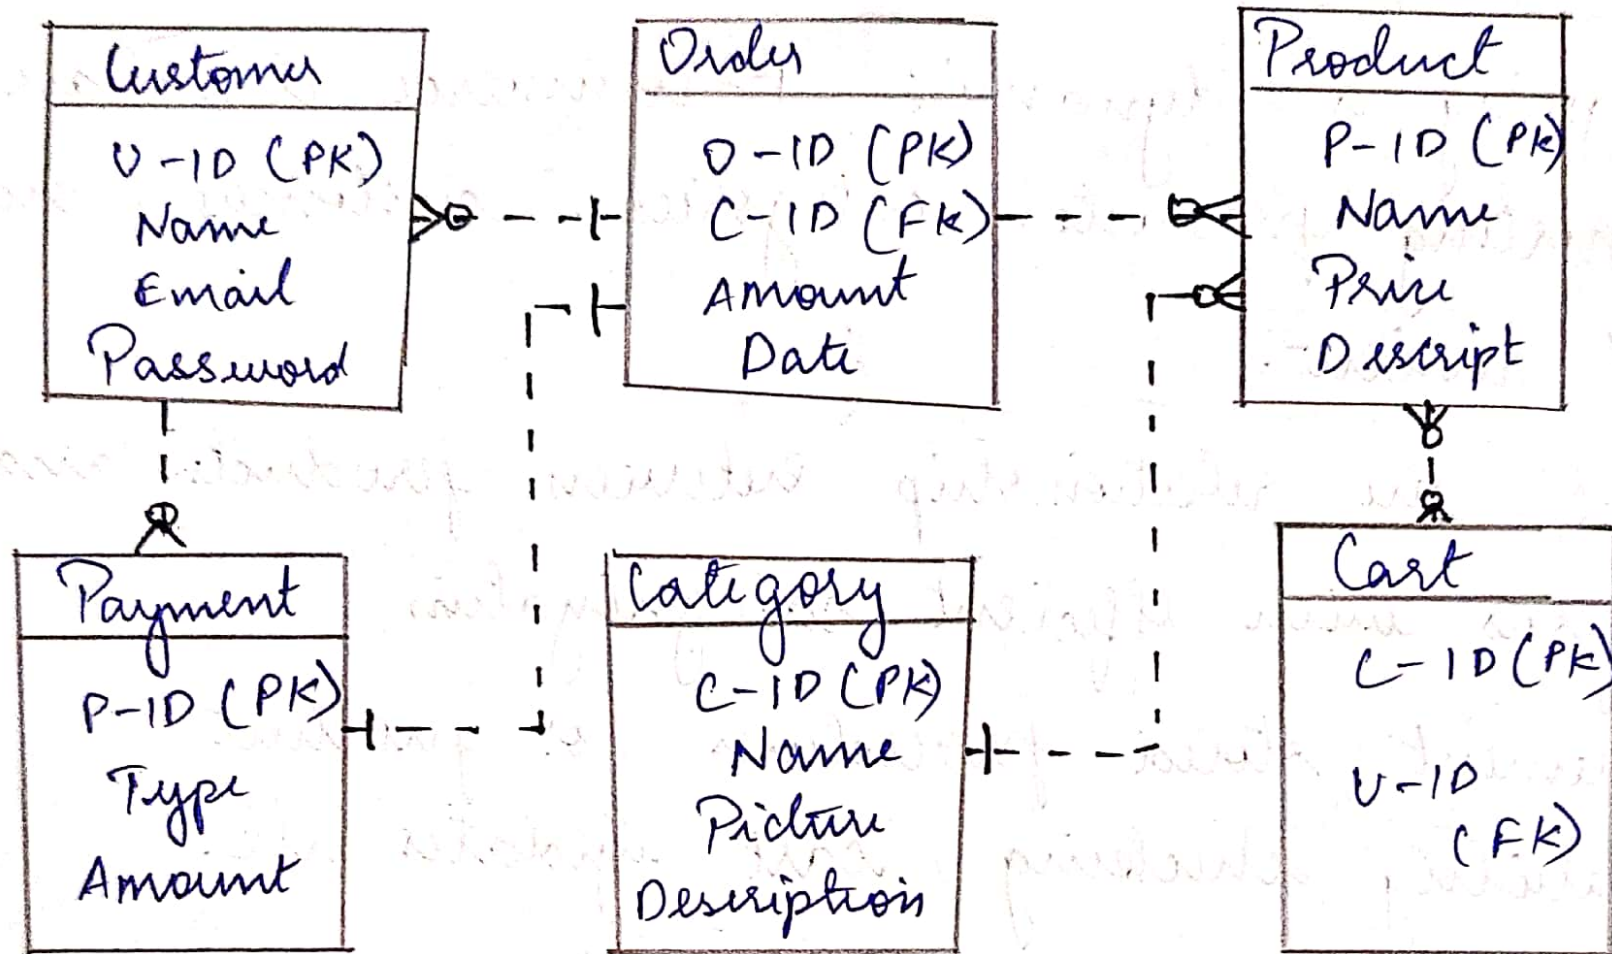 Customer
U-ID (PK)
Name
Email
Password
Order
O-ID (PK)
C-ID (FK)
Amount
Date
Product
P-ID (PK)
Name
Price
Descript
Payment
P-ID (PK)
Type
Amount
Category
C-ID (PK)
Name
Picture
Description
Cart
C-ID (PK)
U-ID
(FK)